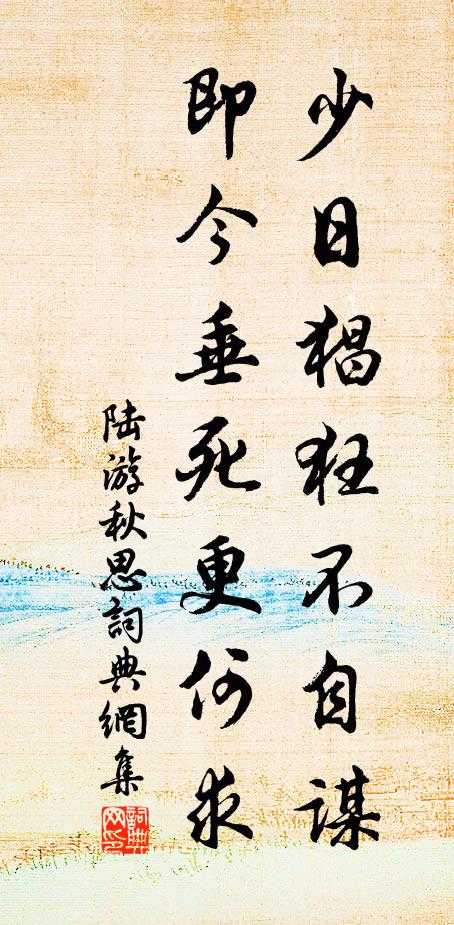 少日猖狂不自谋
即今垂死更何求
陆游秋思詞典網集
詞典网印